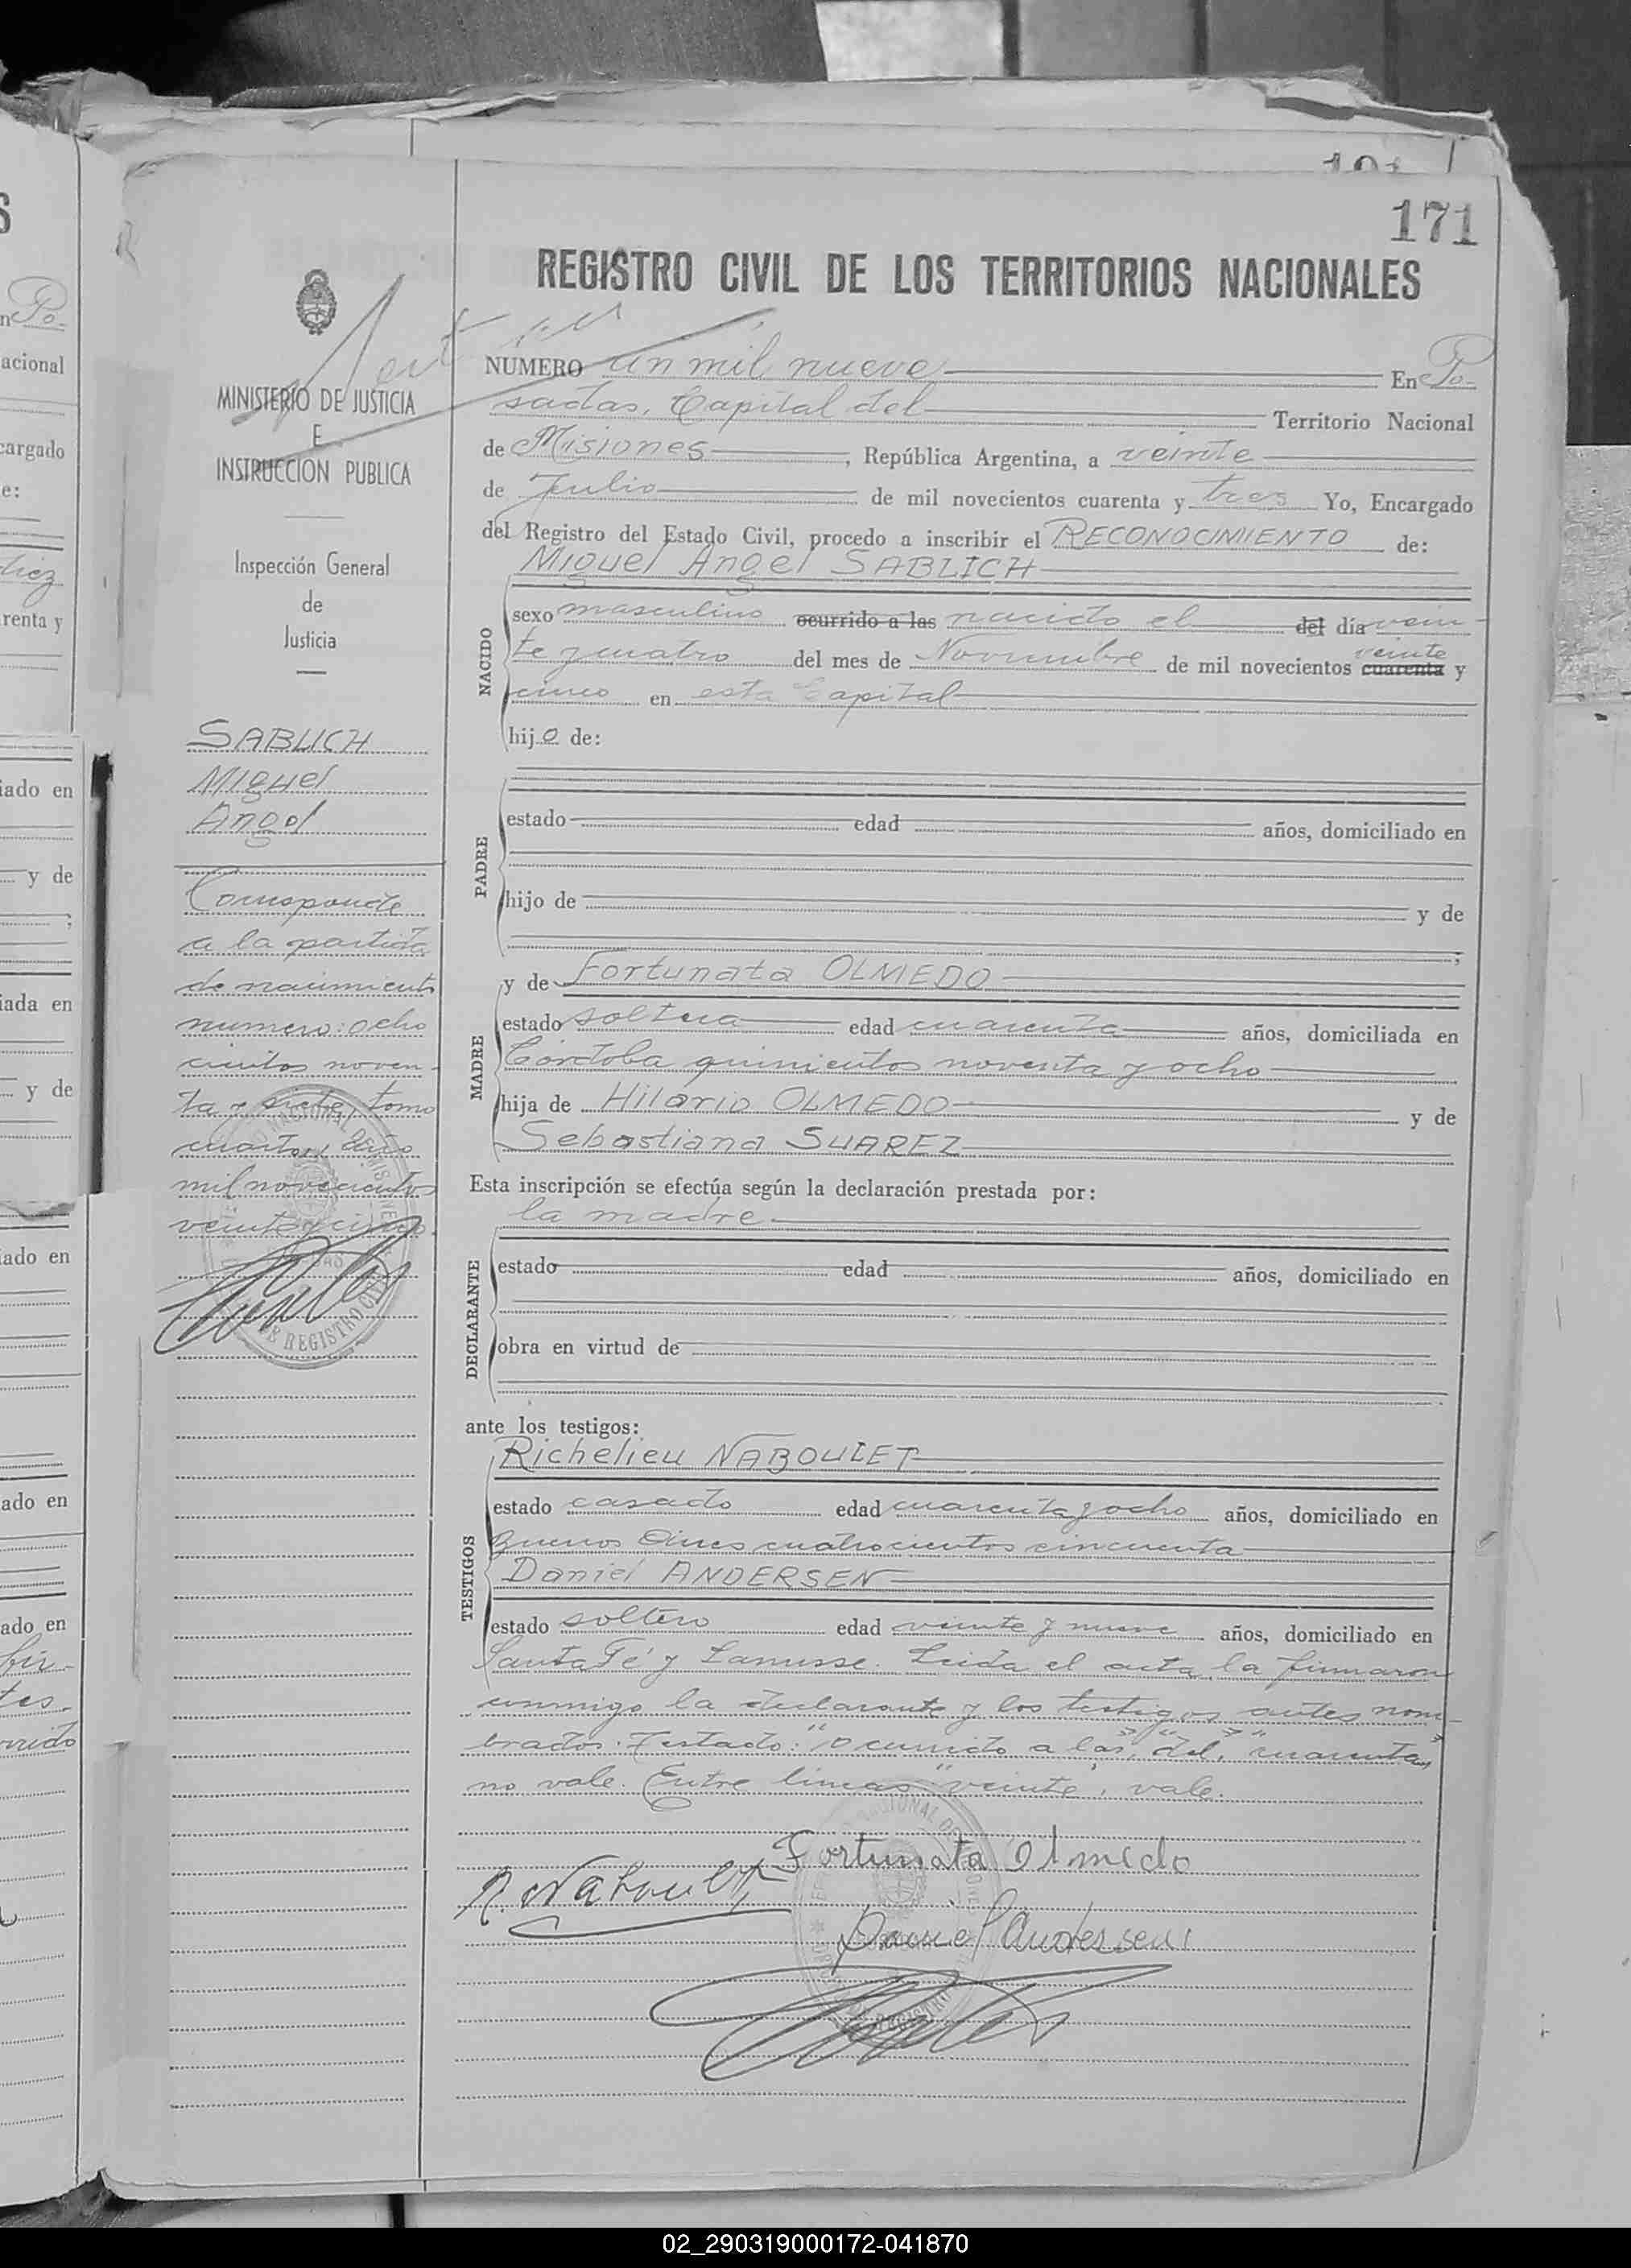 171
REGISTRO CIVIL DE LOS TERRITORIOS NACIONALES
MINISTERIO DE JUSTICIA
E
INSTRUCCION PUBLICA
Inspección General
de
Justicia
SABLICH
Miguel
Angel
Corresponde
a la partida
de nacimiento
numero: ocho
cientos noven-
ta y siete, tomo
cuarto, año
mil novecientos
veinte y cinco.
NUMERO un mil nueve En Po-
sadas, Capital del Territorio Nacional
de Misiones, República Argentina, a veinte
de Julio de mil novecientos cuarenta y tres Yo, Encargado
del Registro del Estado Civil, procedo a inscribir el RECONOCIMIENTO de:
Miguel Angel SABLICH
NACIDO
sexo masculino ocurrido a las nacido el del día vein-
te y cuatro del mes de Noviembre de mil novecientos cuarenta veinte y
cinco en esta Capital
hijo de:
PADRE
estado edad años, domiciliado en
hijo de y de
;
MADRE
y de Fortunata OLMEDO
estado soltera edad cuarenta años, domiciliada en
Córdoba quinientos noventa y ocho
hija de Hilario OLMEDO y de
Sebastiana SUAREZ
Esta inscripción se efectúa según la declaración prestada por:
la madre
DECLARANTE
estado edad años, domiciliado en
obra en virtud de
ante los testigos:
TESTIGOS
Richelieu NABOULET
estado casado edad cuarenta y ocho años, domiciliado en
Buenos Aires cuatrocientos cincuenta
Daniel ANDERSEN
estado soltero edad veinte y nueve años, domiciliado en
Santa Fé y Lanusse. Leida el acta, la firmaron
conmigo la declarante y los testigos antes nom-
brados. Testado: "ocurrido a las", "del", "cuarenta"
no vale. Entre lineas "veinte", vale.
Fortunata Olmedo
R. Naboulet
Daniel Andersen
02_290319000172-041870